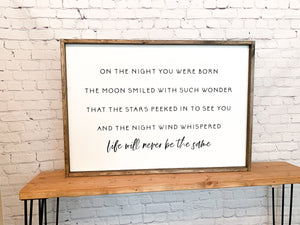 ON THE NIGHT YOU WERE BORN
THE MOON SMILED WITH SUCH WONDER
THAT THE STARS PEEKED IN TO SEE YOU
AND THE NIGHT WIND WHISPERED
life will never be the same